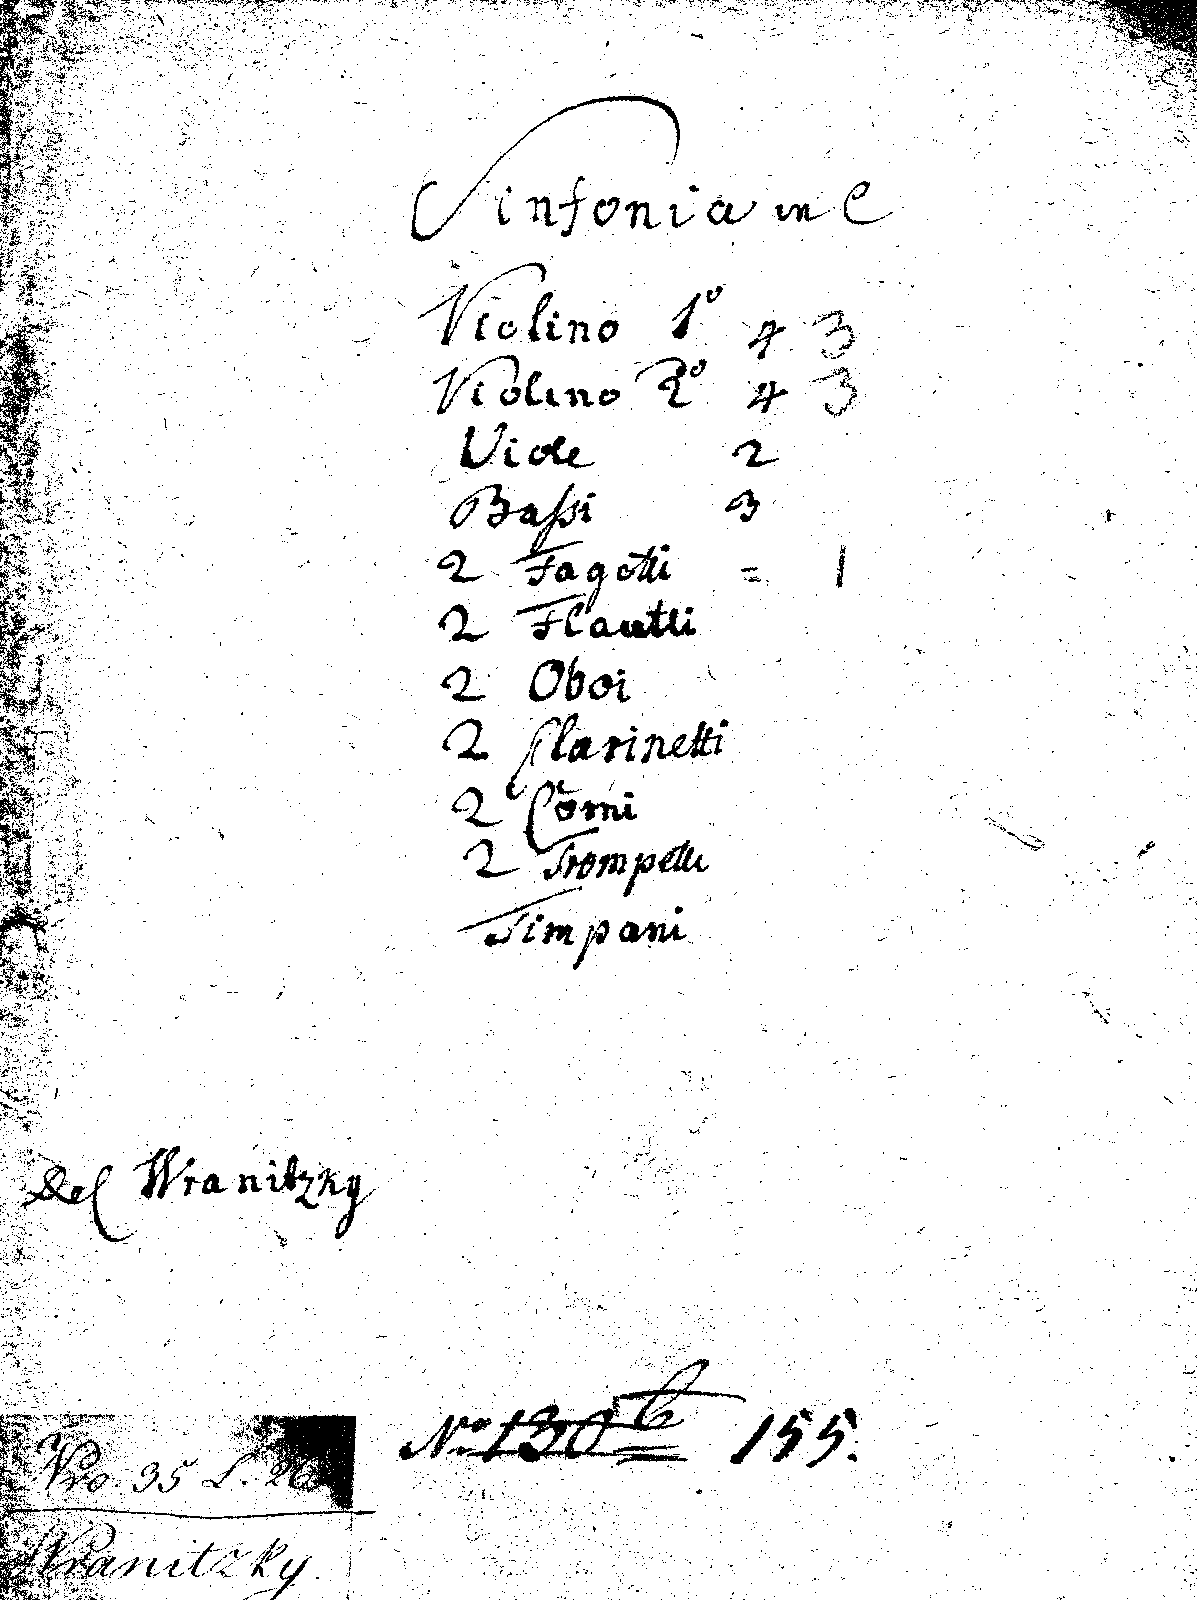 Sinfonia in C
Violino 1º 4 3
Violino 2º 4 3
Viole 2
Bassi 3
2 Fagotti = 1
2 Flautti
2 Oboi
2 Clarinetti
2 Corni
2 Trompetti
Timpani
Del Wranitzky
Nº 130 b 155.
Nro. 35 L. 26
Wranitzky.